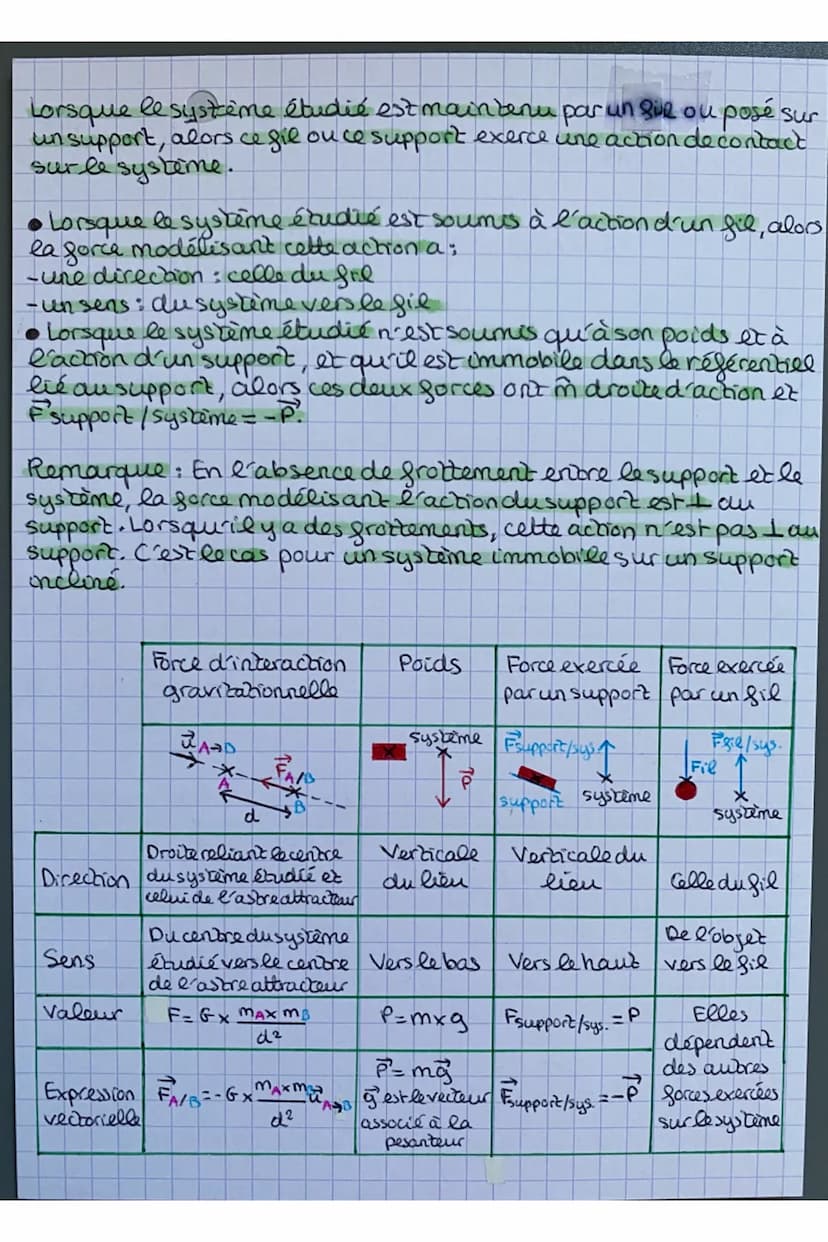 Lorsque le système étudié est maintenu par un fil ou posé sur
un support, alors ce fil ou ce support exerce une action de contact
sur le système.
• Lorsque le système étudié est soumis à l'action d'un fil, alors
la force modélisant cette action a :
- une direction : celle du fil
- un sens : du système vers le fil
• Lorsque le système étudié n'est soumis qu'à son poids et à
l'action d'un support, et qu'il est immobile dans le référentiel
lié au support, alors ces deux forces ont m̂ droite d'action et
F⃗ support/système = -P⃗.
Remarque : En l'absence de frottement entre le support et le
système, la force modélisant l'action du support est ⊥ au
support. Lorsqu'il y a des frottements, cette action n'est pas ⊥ au
support. C'est le cas pour un système immobile sur un support
incliné.
Force d'interaction
gravitationnelle
Poids
Force exercée
par un support
Force exercée
par un fil
u⃗ A→B
F⃗ A/B
A
B
d
système
P⃗
F⃗support/sys.
support
système
Fil
F⃗fil/sys.
système
Direction
Droite reliant le centre
du système étudié et
celui de l'astre attracteur
Verticale
du lieu
Verticale du
lieu
Celle du fil
Sens
Du centre du système
étudié vers le centre
de l'astre attracteur
Vers le bas
Vers le haut
De l'objet
vers le fil
Valeur
F = G × mA × mB / d²
P = m × g
Fsupport/sys. = P
Elles
dépendent
des autres
forces exercées
sur le système
Expression
vectorielle
F⃗A/B = - G × mA × mB / d² u⃗A→B
P⃗ = mg⃗
g⃗ est le vecteur
associé à la
pesanteur
F⃗support/sys. = -P⃗